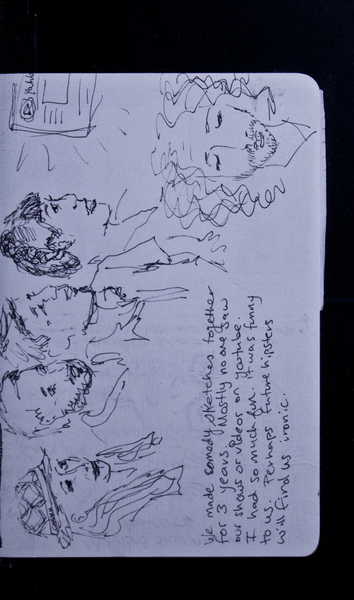 Youtube
We made comedy sketches together
for 3 years. Mostly no one saw
our shows or videos on Youtube.
I had so much fun. It was funny
to us. Perhaps future hipsters
will find us ironic.